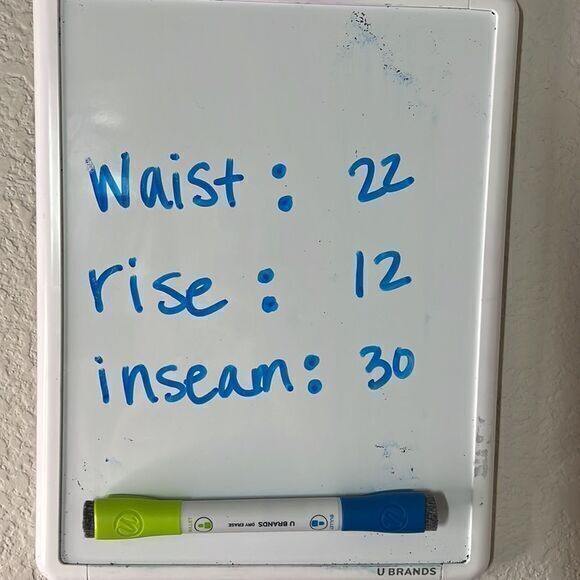 Waist : 22
rise : 12
inseam : 30
U BRANDS DRY ERASE
U BRANDS